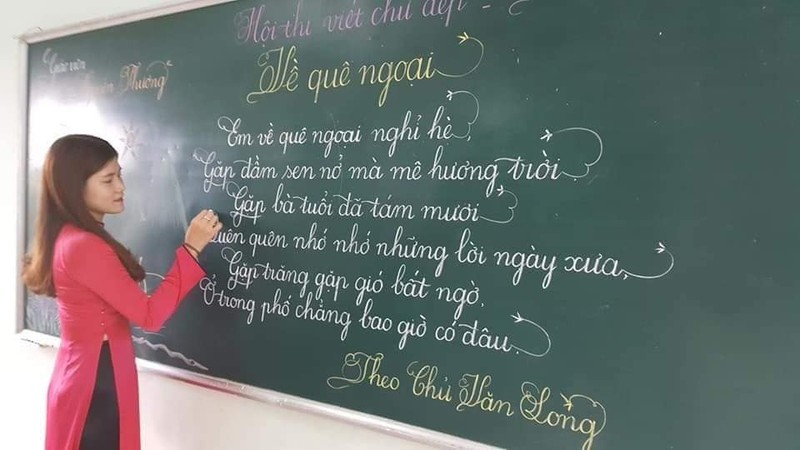 Hội thi viết chữ đẹp
Giáo viên
Thương
Về quê ngoại
Em về quê ngoại nghỉ hè,
Gặp đầm sen nở mà mê hương trời.
Gặp bà tuổi đã tám mươi
quên quên nhớ nhớ những lời ngày xưa.
Gặp trăng gặp gió bất ngờ,
Ở trong phố chẳng bao giờ có đâu.
Theo Chử Văn Long